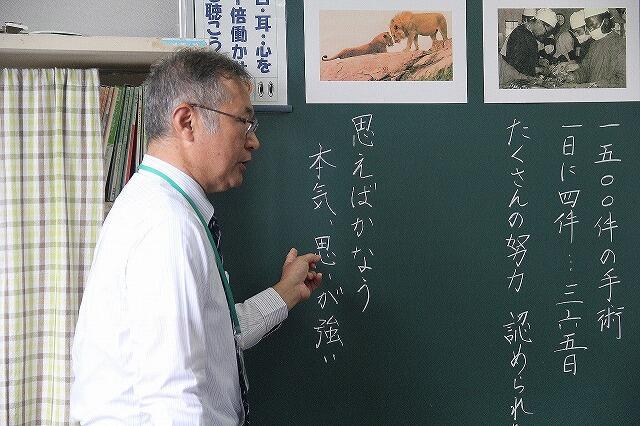 一五〇〇件の手術
一日に四件…三六五日
たくさんの努力 認められ
思えばかなう
本気、思いが強い
・耳・心を
倍働かせ
聴こう